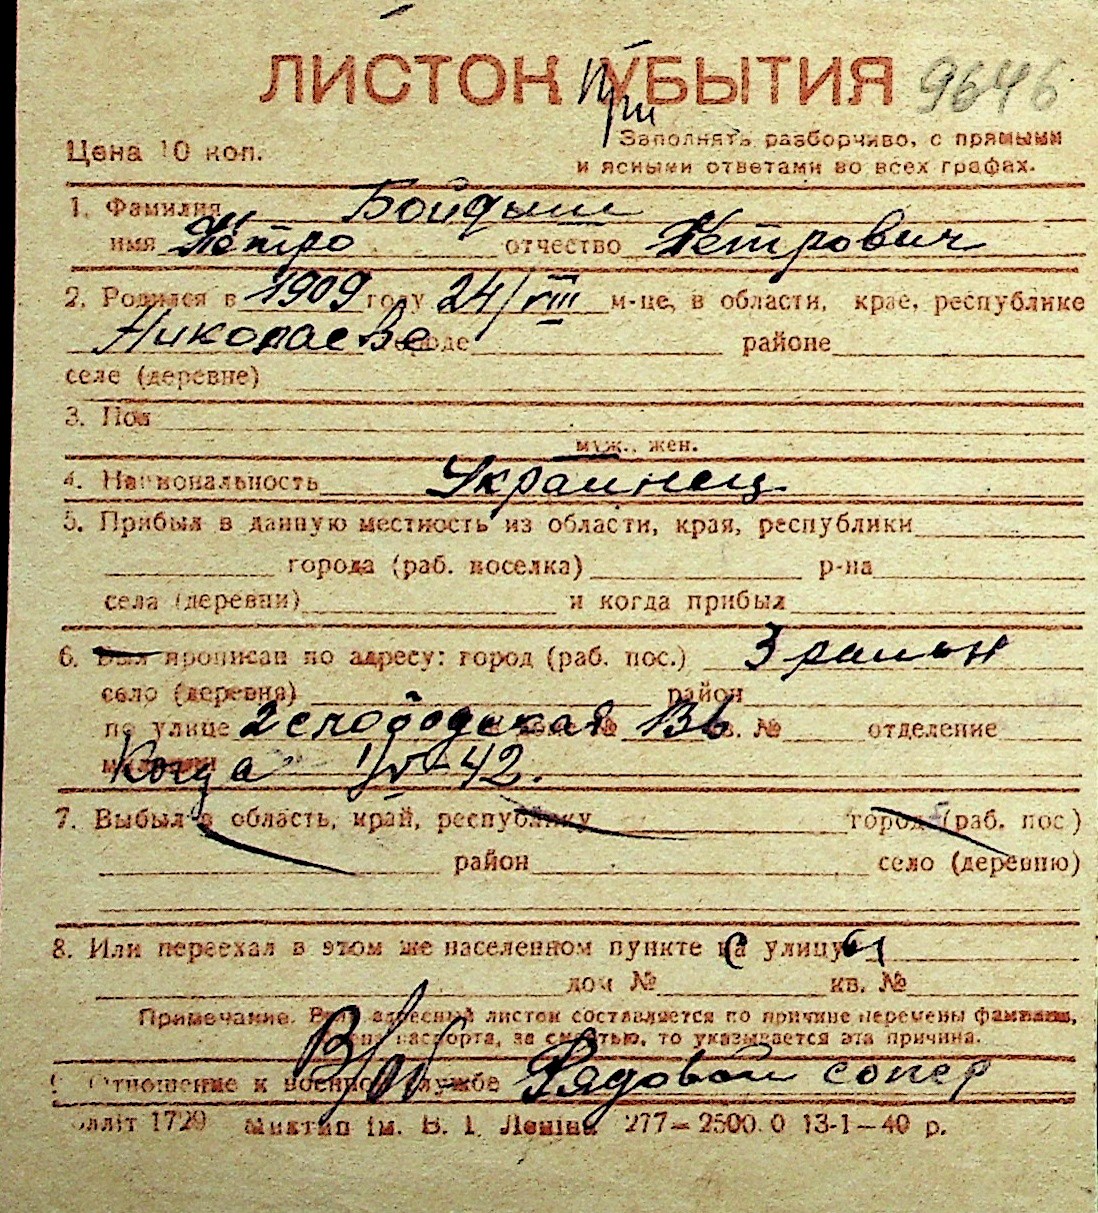 ЛИСТОК УБЫТИЯ 9646
При
Цена 10 коп.
Заполнять разборчиво, с прямыми
и ясными ответами во всех графах.
1. Фамилия Бойдыш
имя Петро отчество Петрович
2. Родился в 1909 году 24/VIII м-це, в области, крае, республике
Николаеве городе районе
селе (деревне)
3. Пол
муж., жен.
4. Национальность Украинец
5. Прибыл в данную местность из области, края, республики
города (раб. поселка) р-на
села (деревни) и когда прибыл
6. Был прописан по адресу: город (раб. пос.) 3 район
село (деревня) район
по улице 2 слободская 13б кв. № отделение
милиции Когда 1/V-42.
7. Выбыл в область, край, республику город (раб. пос)
район село (деревню)
8. Или переехал в этом же населенном пункте на улицу
дом № кв. №
Примечание. Если адресный листок составляется по причине перемены фамилии,
паспорта, за смертью, то указывается эта причина.
9. Отношение к военной службе В/об Рядовой сопер
1729 Миктип ім. В. І. Леніна 277—2500.0 13-1—40 р.